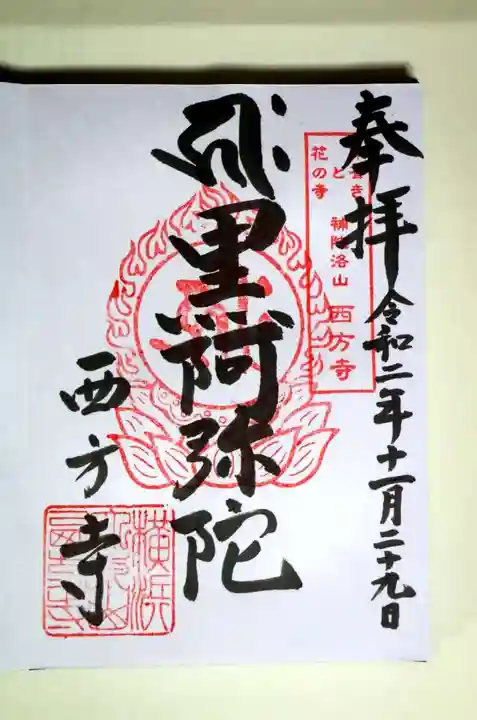 奉拝
令和二年十一月二十九日
花の寺
補陀洛山
西方寺
黒阿弥陀
西方寺
横浜